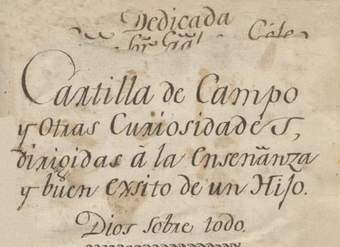 Dedicada
Cartilla de Campo
y Otras Curiosidades,
dirigidas à la Enseñanza
y buen exsito de un Hijo.
Dios sobre todo.